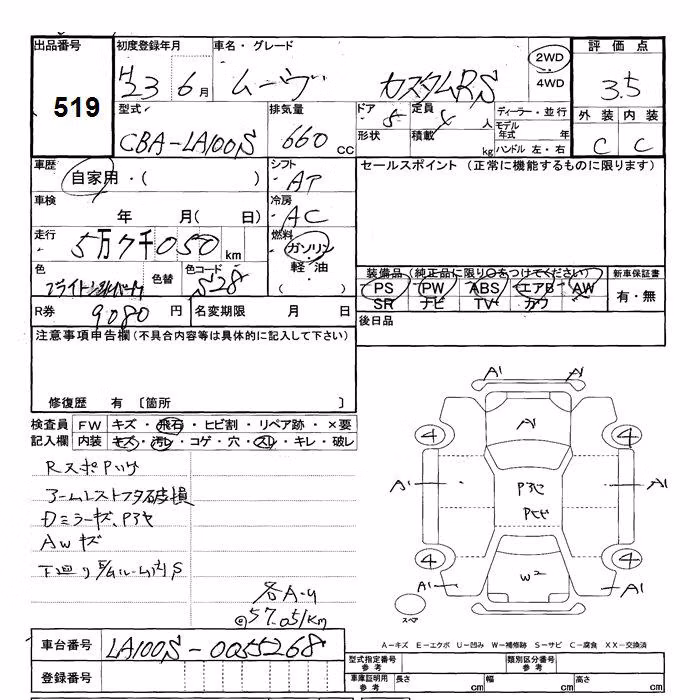 出品番号 初度登録年月 車名・グレード 2WD 評価点
519 H23 6月 ムーヴ カスタムRS 4WD 3.5
型式 排気量 ドア 定員 ディーラー・並行 外装 内装
CBA-LA100S 660 CC 5 4人 モデル年式 年 C C
形状 積載 kg ハンドル 左・右
車歴 シフト セールスポイント (正常に機能するものに限ります)
自家用・( ) AT
車検 冷房
年 月( 日) AC
走行 燃料
5万7千050km ガソリン・
軽油
色 色替 色コード ( ) 装備品(純正品に限り○をつけてください) 新車保証書
S28 PS PW ABS エアB AW 有・無
SR ナビ TV カワ
R券 9080円 名変期限 月 日 後日品
注意事項申告欄(不具合内容等は具体的に記入して下さい)
修復歴 有 〔箇所 〕
検査員 FW キズ・飛石・ヒビ割・リペア跡・×要
記入欄 内装 キズ・汚レ・コゲ・穴・スレ・キレ・破レ
A1 A
A1
4 4
RスポPハゲ
アームレストフタ破損
Dミラーキズ、P3ヤ
AWキズ
A1 A1
4 4
A1 W2 A1
各A-U
@57.051km
スペア
A-キズ E-エクボ U-凹み W-補修跡 S-サビ C-腐食 XX-交換済
車台番号 LA100S-0055268
登録番号
型式指定番号 参考 類別区分番号 参考
車庫証明用 参考 長さ cm 幅 cm 高さ cm